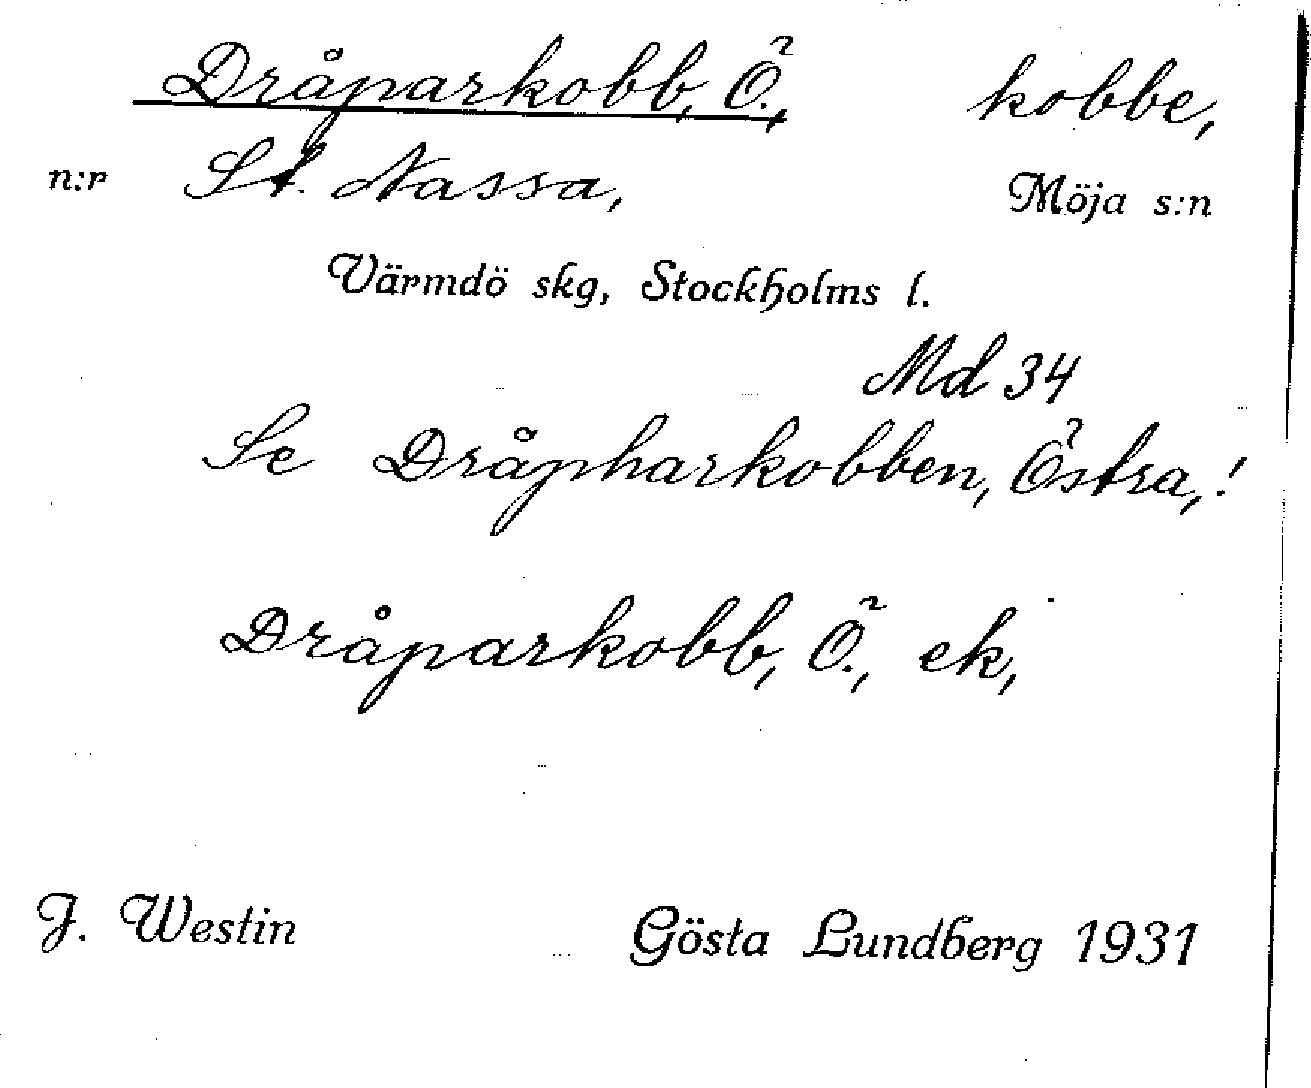 Dråparkobb, Ö., kobbe,
n:r St. Nassa, Möja s:n
Värmdö skg, Stockholms l.
Md 34
Se Dråpharkobben, Östra,!
Dråparkobb, Ö., ek,
J. Westin Gösta Lundberg 1931